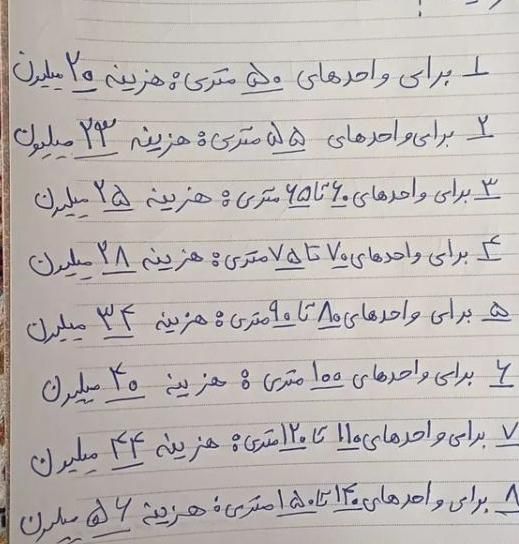 ۱ برای واحدهای ۵۰ متری: هزینه ۲۰ میلیون
۲ برای واحدهای ۵۵ متری: هزینه ۲۳ میلیون
۳ برای واحدهای ۶۰ تا ۶۵ متری: هزینه ۲۵ میلیون
۴ برای واحدهای ۷۰ تا ۷۵ متری: هزینه ۲۸ میلیون
۵ برای واحدهای ۸۰ تا ۹۰ متری: هزینه ۳۴ میلیون
۶ برای واحدهای ۱۰۰ متری: هزینه ۴۰ میلیون
۷ برای واحدهای ۱۱۰ تا ۱۲۰ متری: هزینه ۴۴ میلیون
۸ برای واحدهای ۱۴۰ تا ۱۵۰ متری: هزینه ۵۶ میلیون